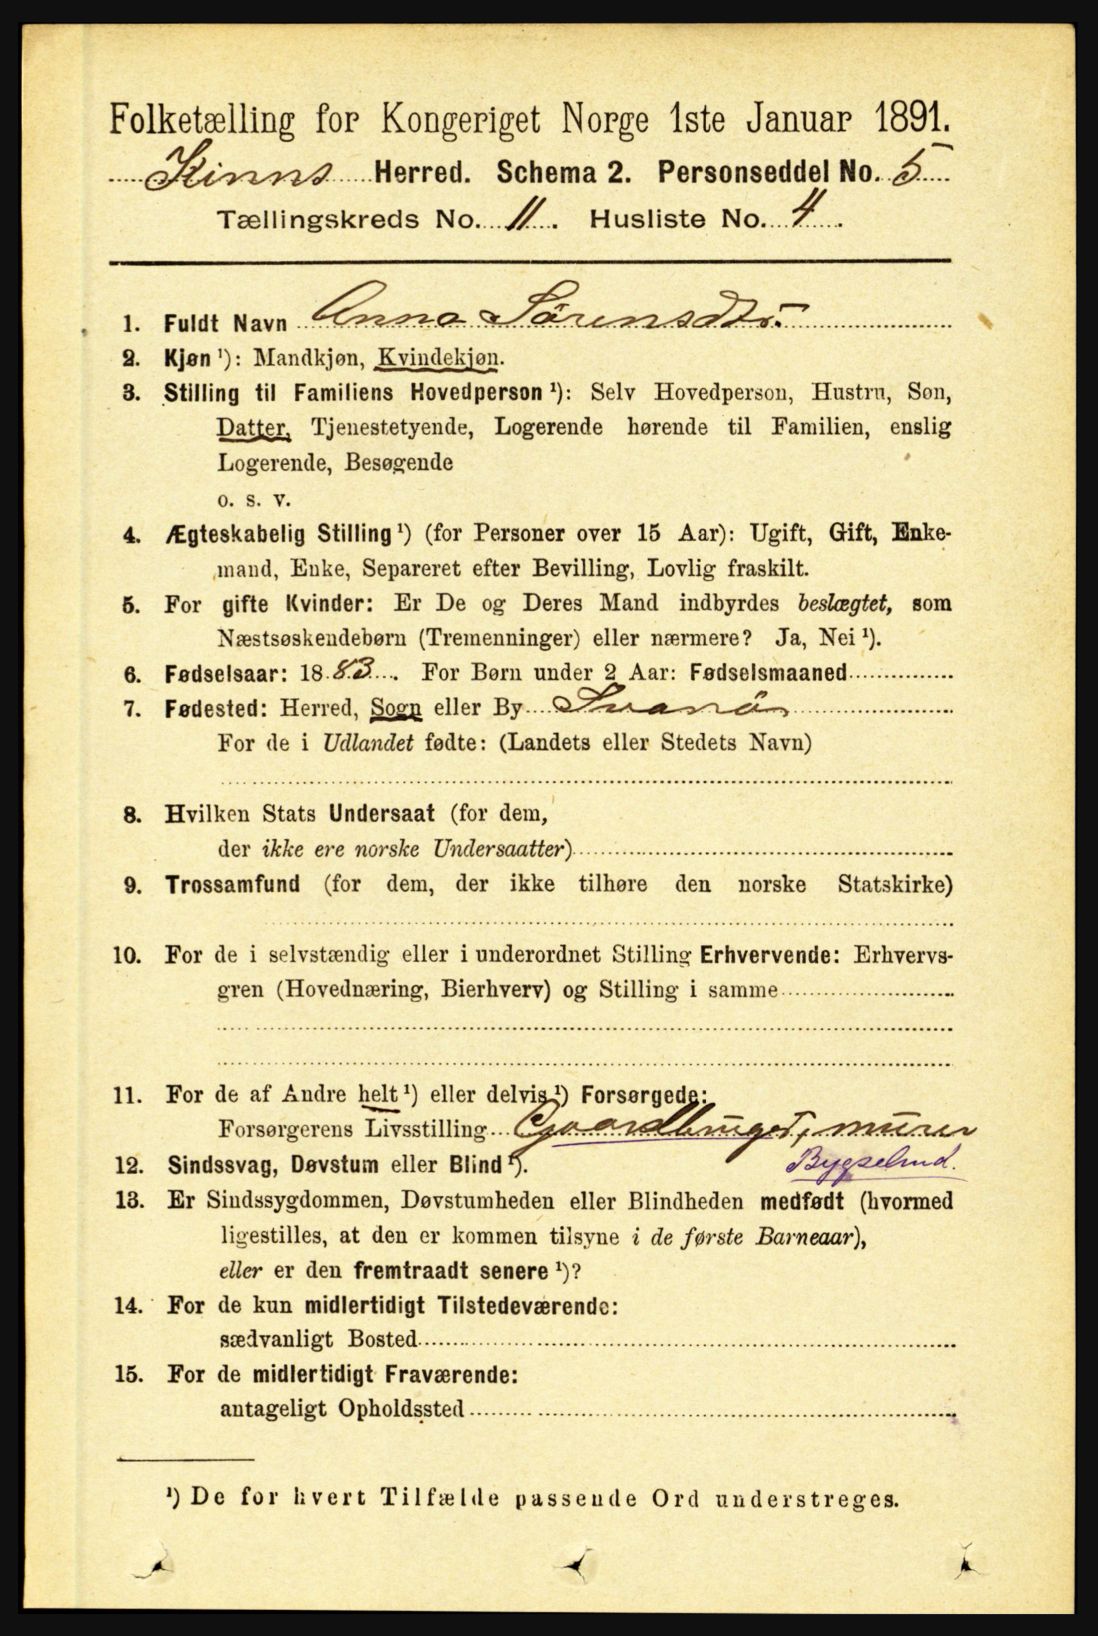 Folketælling for Kongeriget Norge 1ste Januar 1891.
Kinns Herred. Schema 2. Personseddel No. 5
Tællingskreds No. 11. Husliste No. 4.
1. Fuldt Navn Anna Sörensdtr.
2. Kjøn ¹): Mandkjøn, Kvindekjøn.
3. Stilling til Familiens Hovedperson ¹): Selv Hovedperson, Hustru, Søn,
Datter, Tjenestetyende, Logerende hørende til Familien, enslig
Logerende, Besøgende
o. s. v.
4. Ægteskabelig Stilling ¹) (for Personer over 15 Aar): Ugift, Gift, Enke-
mand, Enke, Separeret efter Bevilling, Lovlig fraskilt.
5. For gifte Kvinder: Er De og Deres Mand indbyrdes beslægtet, som
Næstsøskendebørn (Tremenninger) eller nærmere? Ja, Nei ¹).
6. Fødselsaar: 1883. For Børn under 2 Aar: Fødselsmaaned
7. Fødested: Herred, Sogn eller By Svanö
For de i Udlandet fødte: (Landets eller Stedets Navn)
8. Hvilken Stats Undersaat (for dem,
der ikke ere norske Undersaatter)
9. Trossamfund (for dem, der ikke tilhøre den norske Statskirke)
10. For de i selvstændig eller i underordnet Stilling Erhvervende: Erhvervs-
gren (Hovednæring, Bierhverv) og Stilling i samme
11. For de af Andre helt ¹) eller delvis ¹) Forsørgede:
Forsørgerens Livsstilling Gaardbruger, murer
12. Sindssvag, Døvstum eller Blind ¹). Bygselmd.
13. Er Sindssygdommen, Døvstumheden eller Blindheden medfødt (hvormed
ligestilles, at den er kommen tilsyne i de første Barneaar),
eller er den fremtraadt senere ¹)?
14. For de kun midlertidigt Tilstedeværende:
sædvanligt Bosted
15. For de midlertidigt Fraværende:
antageligt Opholdssted
¹) De for hvert Tilfælde passende Ord understreges.